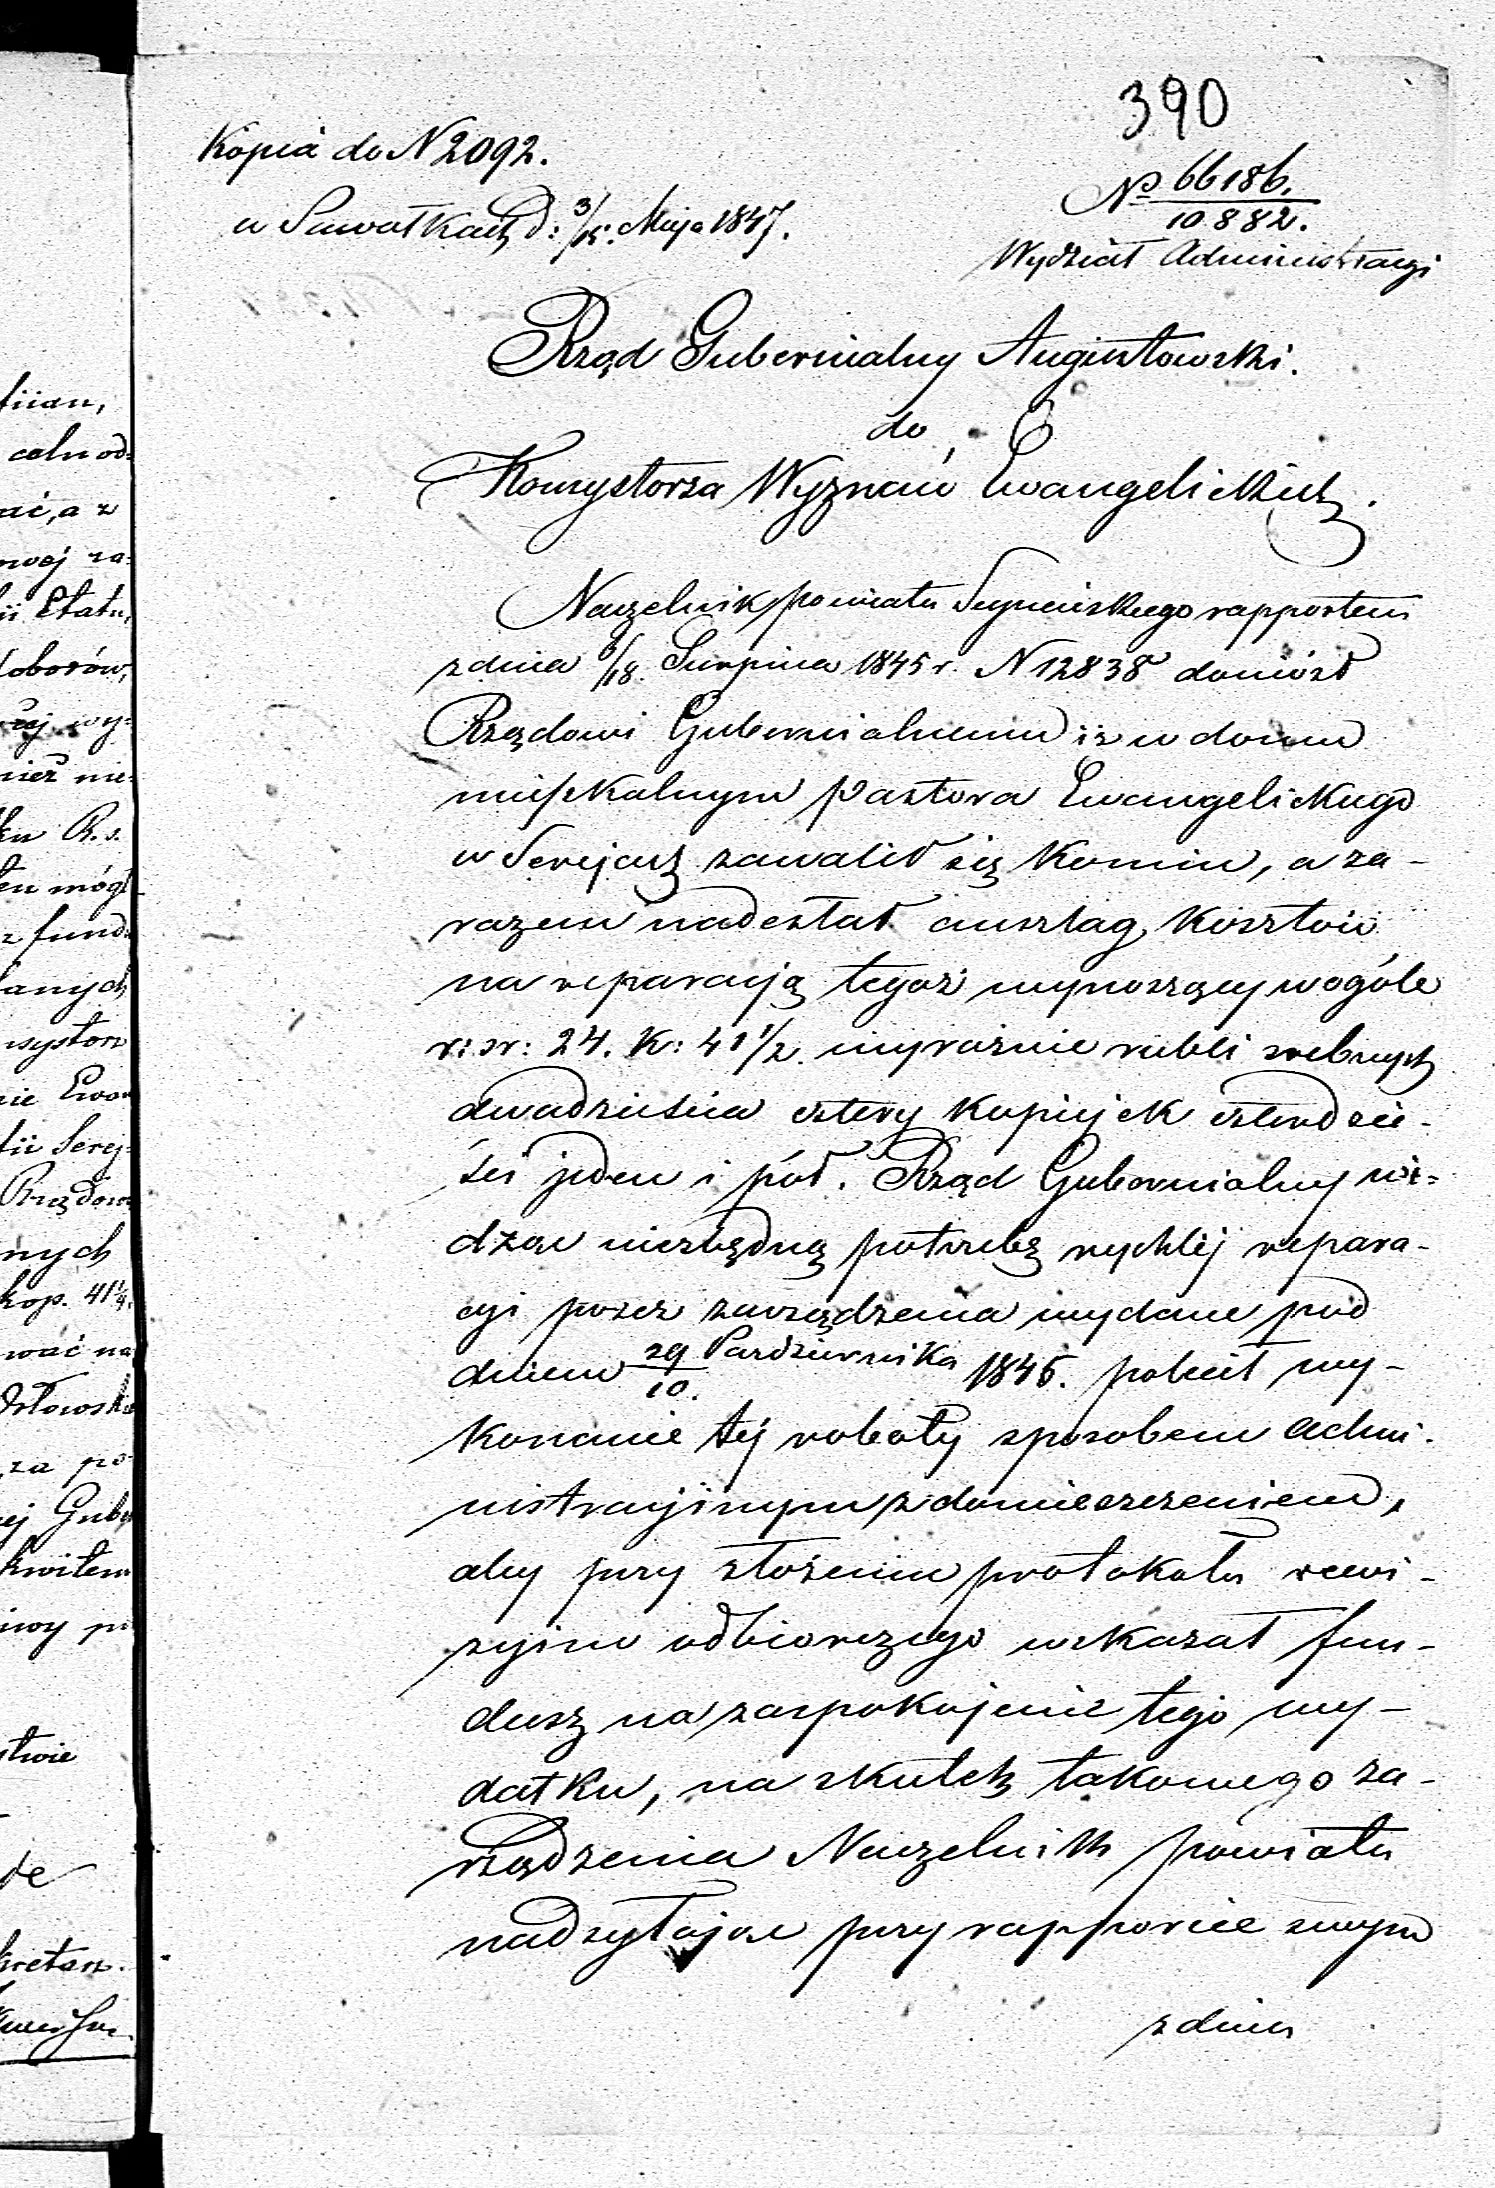 390
Kopia do N 2092.
w Suwałkach d: 3/15. Maja 1847.
No 66186.
10882.
Wydział Administracyi
Rząd Gubernialny Augustowski.
do
Konsystorza Wyznań Ewangelickich.
Naczelnik powiatu Sejneńskiego rapportem
z dnia 6/18. Sierpnia 1845 r. N 12838 doniósł
Rządowi Gubernialnemu iż w domu
mieszkalnym Pastora Ewangelickiego
w Serejach zawalił się komin, a za-
razem nadesłał anszlag kosztów
na reparacją tegoż wynoszący wogóle
r: sr: 24. k: 41 1/2. wyraźnie rubli srebnych
dwadzieścia cztery kopiejek czterdzie-
ści jeden i pół. Rząd Gubernialny wi-
dząc niezbędną potrzebę rychlej repara-
cyi przez zarządzenia wydane pod
dniem 29/10. Pazdziernika 1845. polecił wy-
konanie tej roboty sposobem admi-
nistracyjnym z domieszczeniem,
aby przy złożeniu protokołu rewi-
zyjno odbiorczego wskazał fun-
dusz na zaspokojenie tego wy-
datku, na skutek takowego za-
rządzenia Naczelnik powiatu
nadsyłając przy rapporcie swym
z dnia
tiian,
celu od-
ać, a z
owej za-
ii Etatu,
oborów,
ej wy-
nież nie-
ku R. s.
en mógł
z fund-
anych
nsystorz
nie Ewan
tii Serej-
Rządow
nych
kop. 41 1/2.
wać na
za po-
ej Gube
kwitem